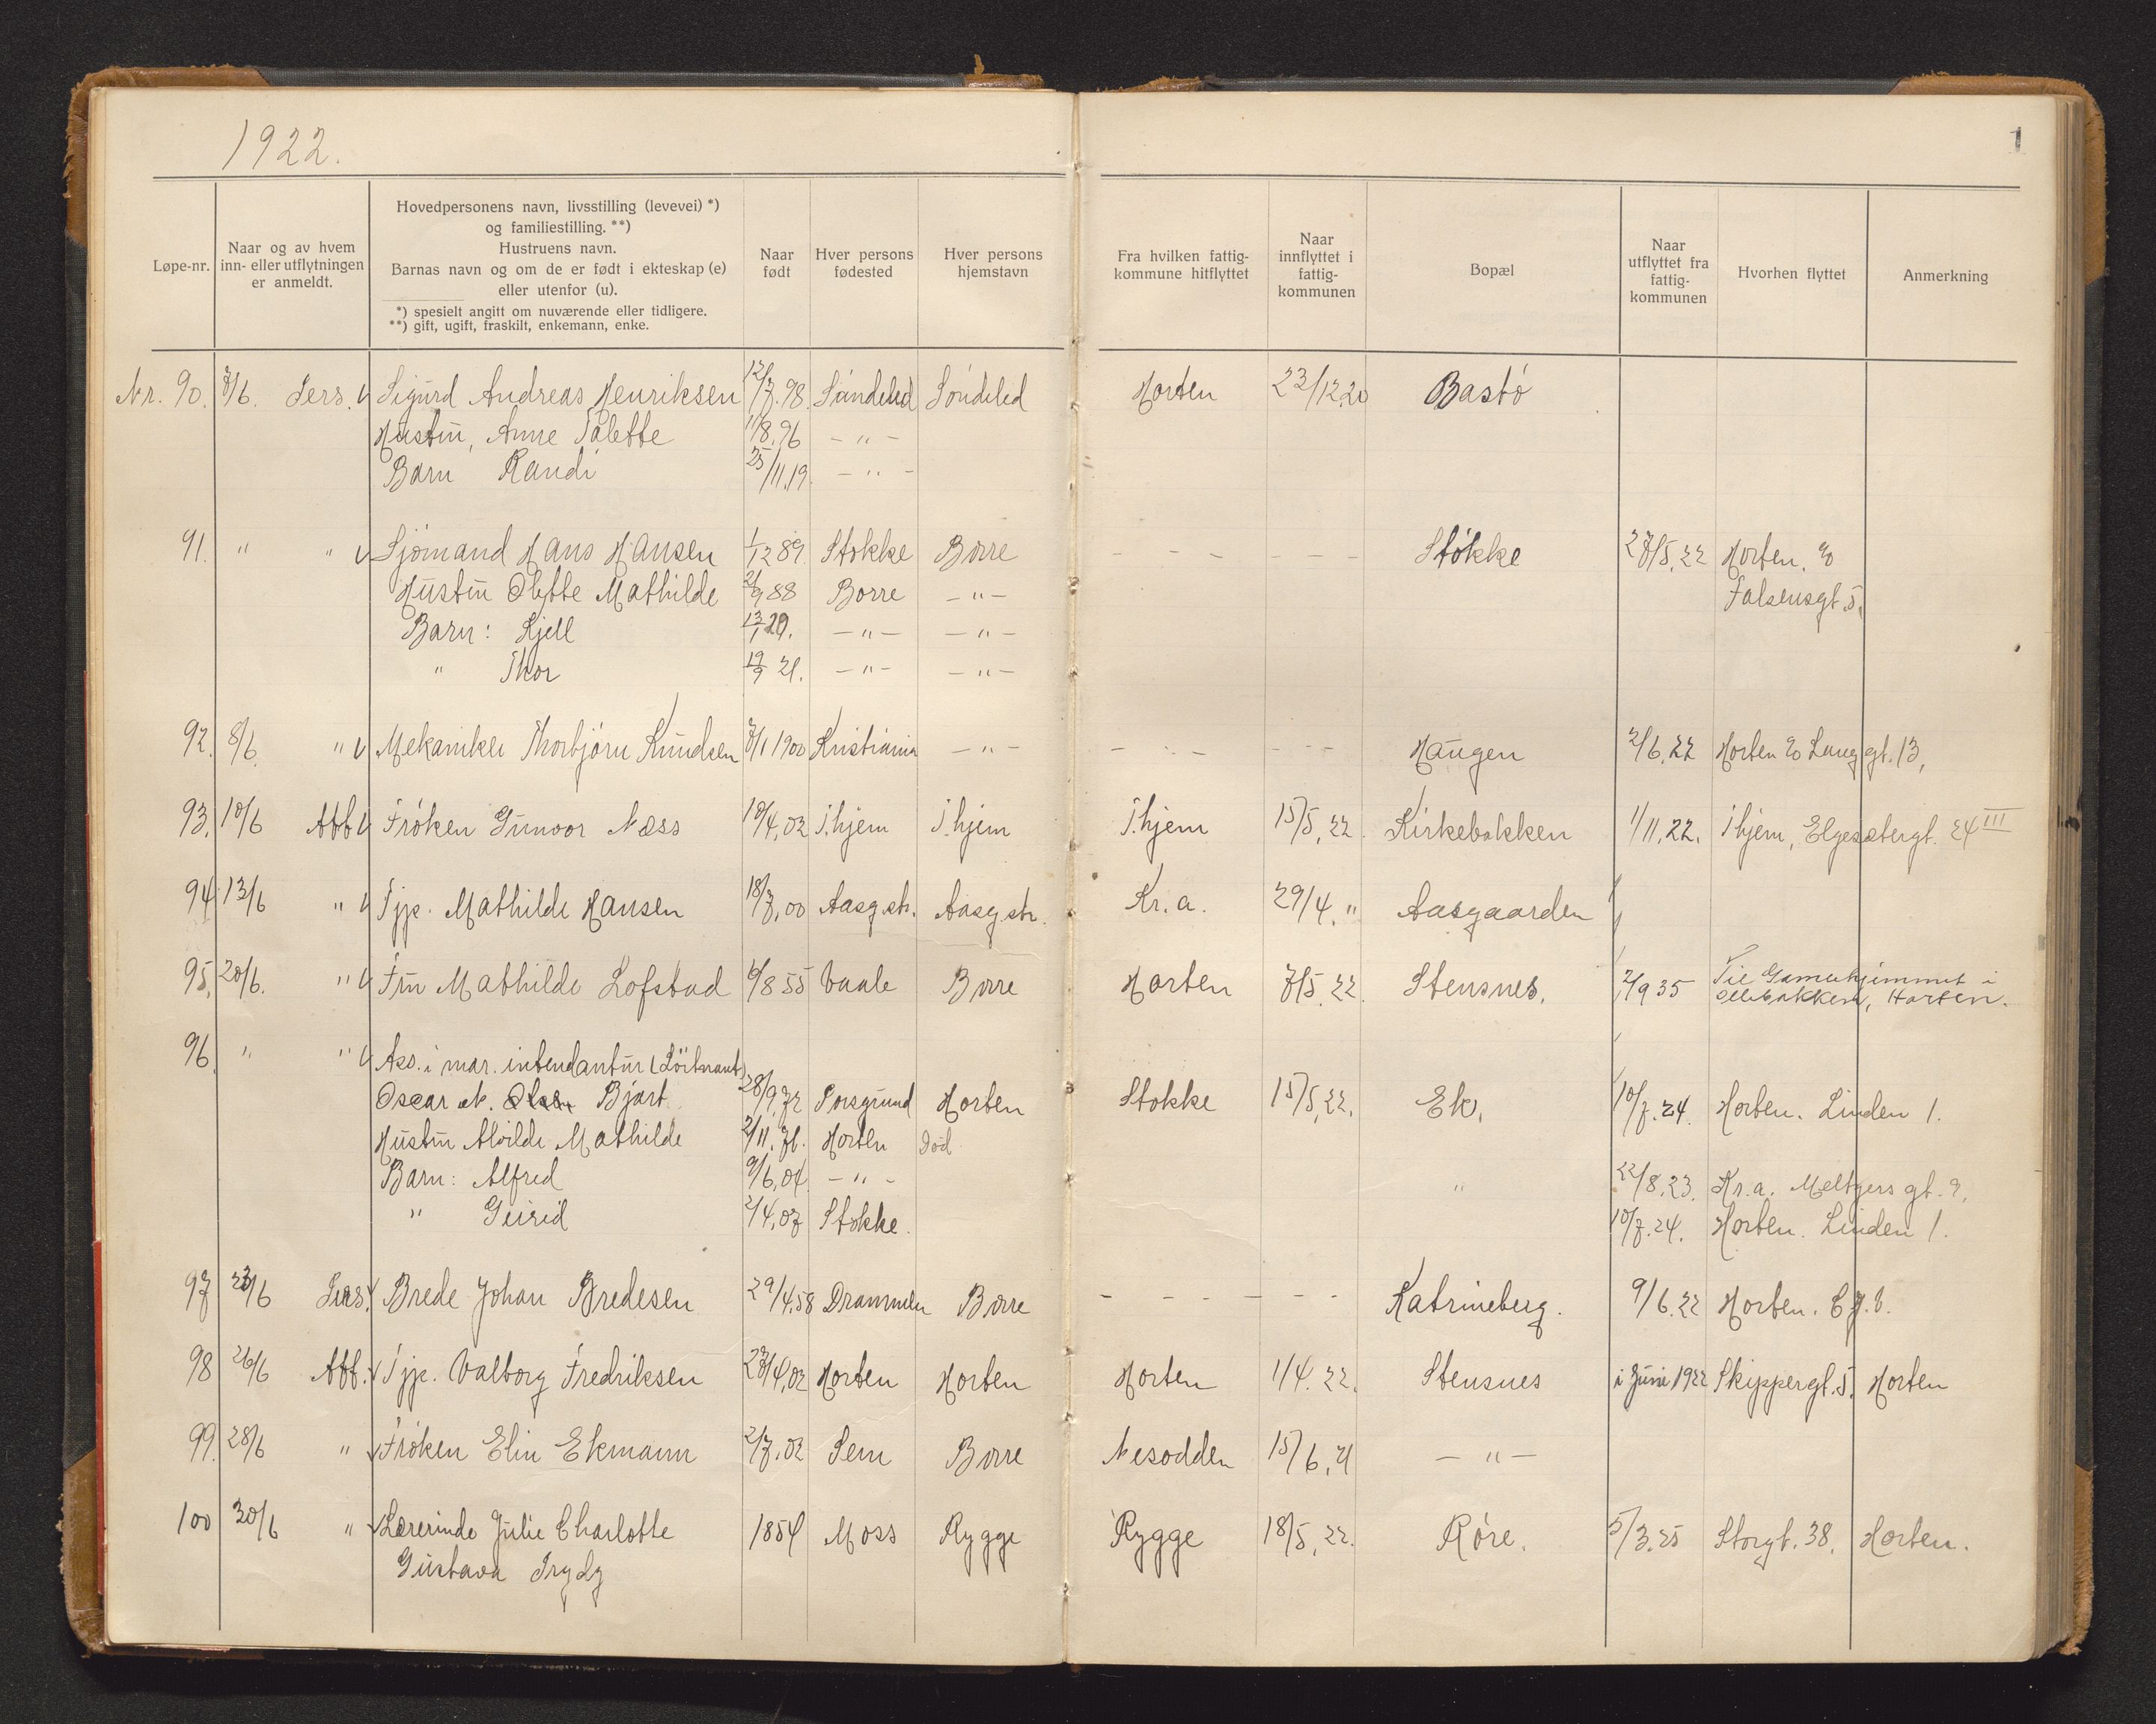 1922.
1
Løpe-nr.
Naar og av hvem
inn- eller utflytningen
er anmeldt.
Hovedpersonens navn, livsstilling (levevei) *)
og familiestilling. **)
Hustruens navn.
Barnas navn og om de er født i ekteskap (e)
eller utenfor (u).
*) spesielt angitt om nuværende eller tidligere.
**) gift, ugift, fraskilt, enkemann, enke.
Naar
født
Hver persons
fødested
Hver persons
hjemstavn
Fra hvilken fattig-
kommune hitflyttet
Naar
innflyttet i
fattig-
kommunen
Bopæl
Naar
utflyttet fra
fattig-
kommunen
Hvorhen flyttet
Anmerkning
Nr. 90. 7/6. Sigurd Andreas Henriksen 12/7.98. Söndeled Söndeled Horten 23/12.20 Bastö
Hustru, Anne Talette 11/8.96 — " —
Barn Randi 25/11.19. — " —
91. " " Sjömand Hans Hansen 1/12 89. Stokke Borre — — — — — — Stokke 27/5.22 Horten.
Falsensgt. 5.
Hustru Olette Mathilde 21/9 88 Borre — " —
Barn: Kjell 13/1 20. — " — — " —
" Thor 19/9 21. — " — — " —
92. 8/6. " Mekaniker Thorbjörn Knudsen 7/1 1900 Kristiania — " — Haugen 2/6.22 Horten Langgt. 13,
93. 10/6 Abb Fröken Gunvor Næss 10/4.02 T.hjem T.hjem T.hjem 15/5.22. Kirkebakken 1/11.22. T.hjem, Elgesætergt. 24 III
94 13/6 " Tjp. Mathilde Hansen 18/7.00 Aasg.str. Aasg.str. Kr.a. 29/4. " Aasgaarden
95. 20/6. " Fru Mathilde Lofstad 6/8 55 Vaale Borre Horten 7/5.22. Stensnes. 2/9 35 Til Gamlehjemmet i
Horten.
96. " " Ass. i mar. intendantur (Löitnant)
Oscar N. Olsen Bjart 28/9.72 Porsgrund Horten Stokke 15/5.22. Ek. 10/7.24. Horten. Linden 1.
Hustru Alvilde Mathilde 2/11.76. Horten Död
Barn: Alfred 9/6.04. — " — " 22/8.23. Kr.a. Meltzers gt. 9.
" Guirid 2/4.07 Stokke. 10/7.24. Horten. Linden 1.
97 23/6 Brede Johan Bredesen 29/4.58 Drammen Borre — — — — — Katrineberg. 9/6.22 Horten.
98 26/6 Abb. Tjp. Valborg Fredriksen 27/4.02 Horten Horten Horten 1/4.22. Stensnes i Juni 1922 Skippergt. 5. Horten
99. 28/6 " Fröken Elin Ekmann 2/7.02 Sem Borre Nesodden 15/6.21 — " —
100 30/6 " Lærerinde Julie Charlotte 1854 Moss Rygge Rygge 18/5.22. Röre. 5/3.25 Storgt. 38. Horten.
Gustava